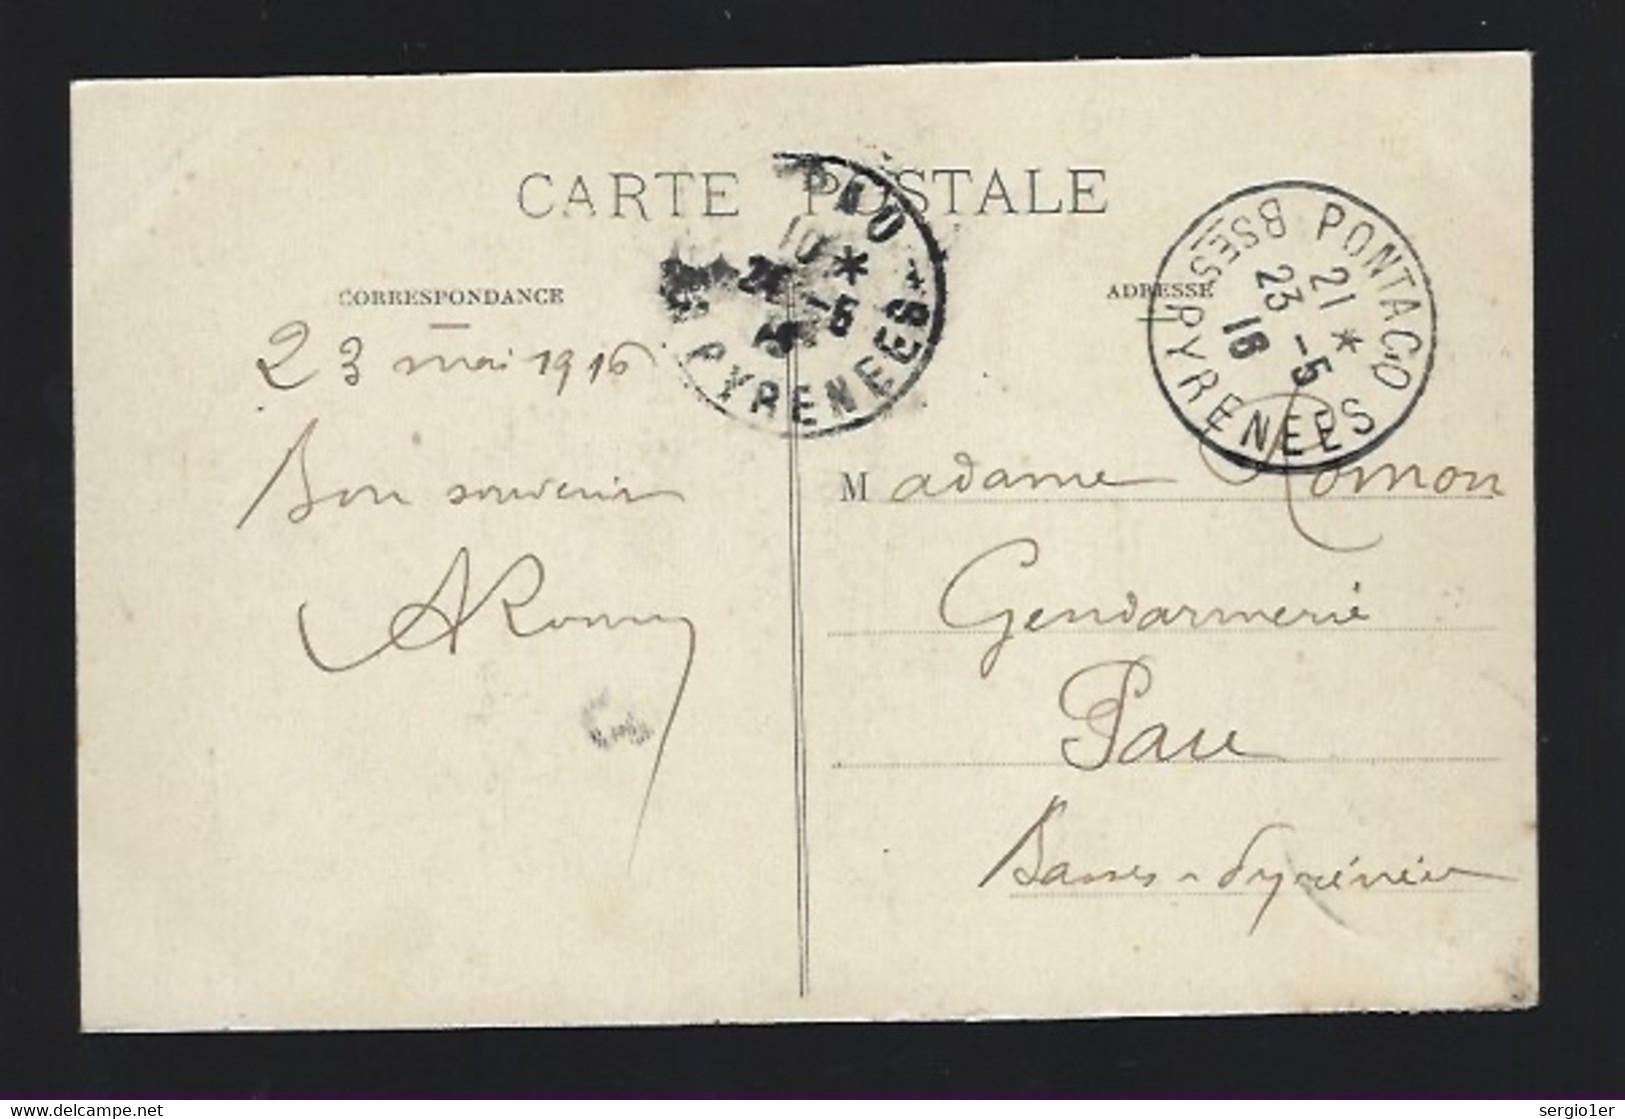 CARTE POSTALE
CORRESPONDANCE
ADRESSE
PONTACQ
21 *
23 -5
16
BSES PYRENEES
10 *
-5
PYRENEES *
23 mai 1916
Bon souvenir
Madame Romon
Gendarmerie
Pau
Basses-Pyrénées
www.delcampe.net
sergio1er